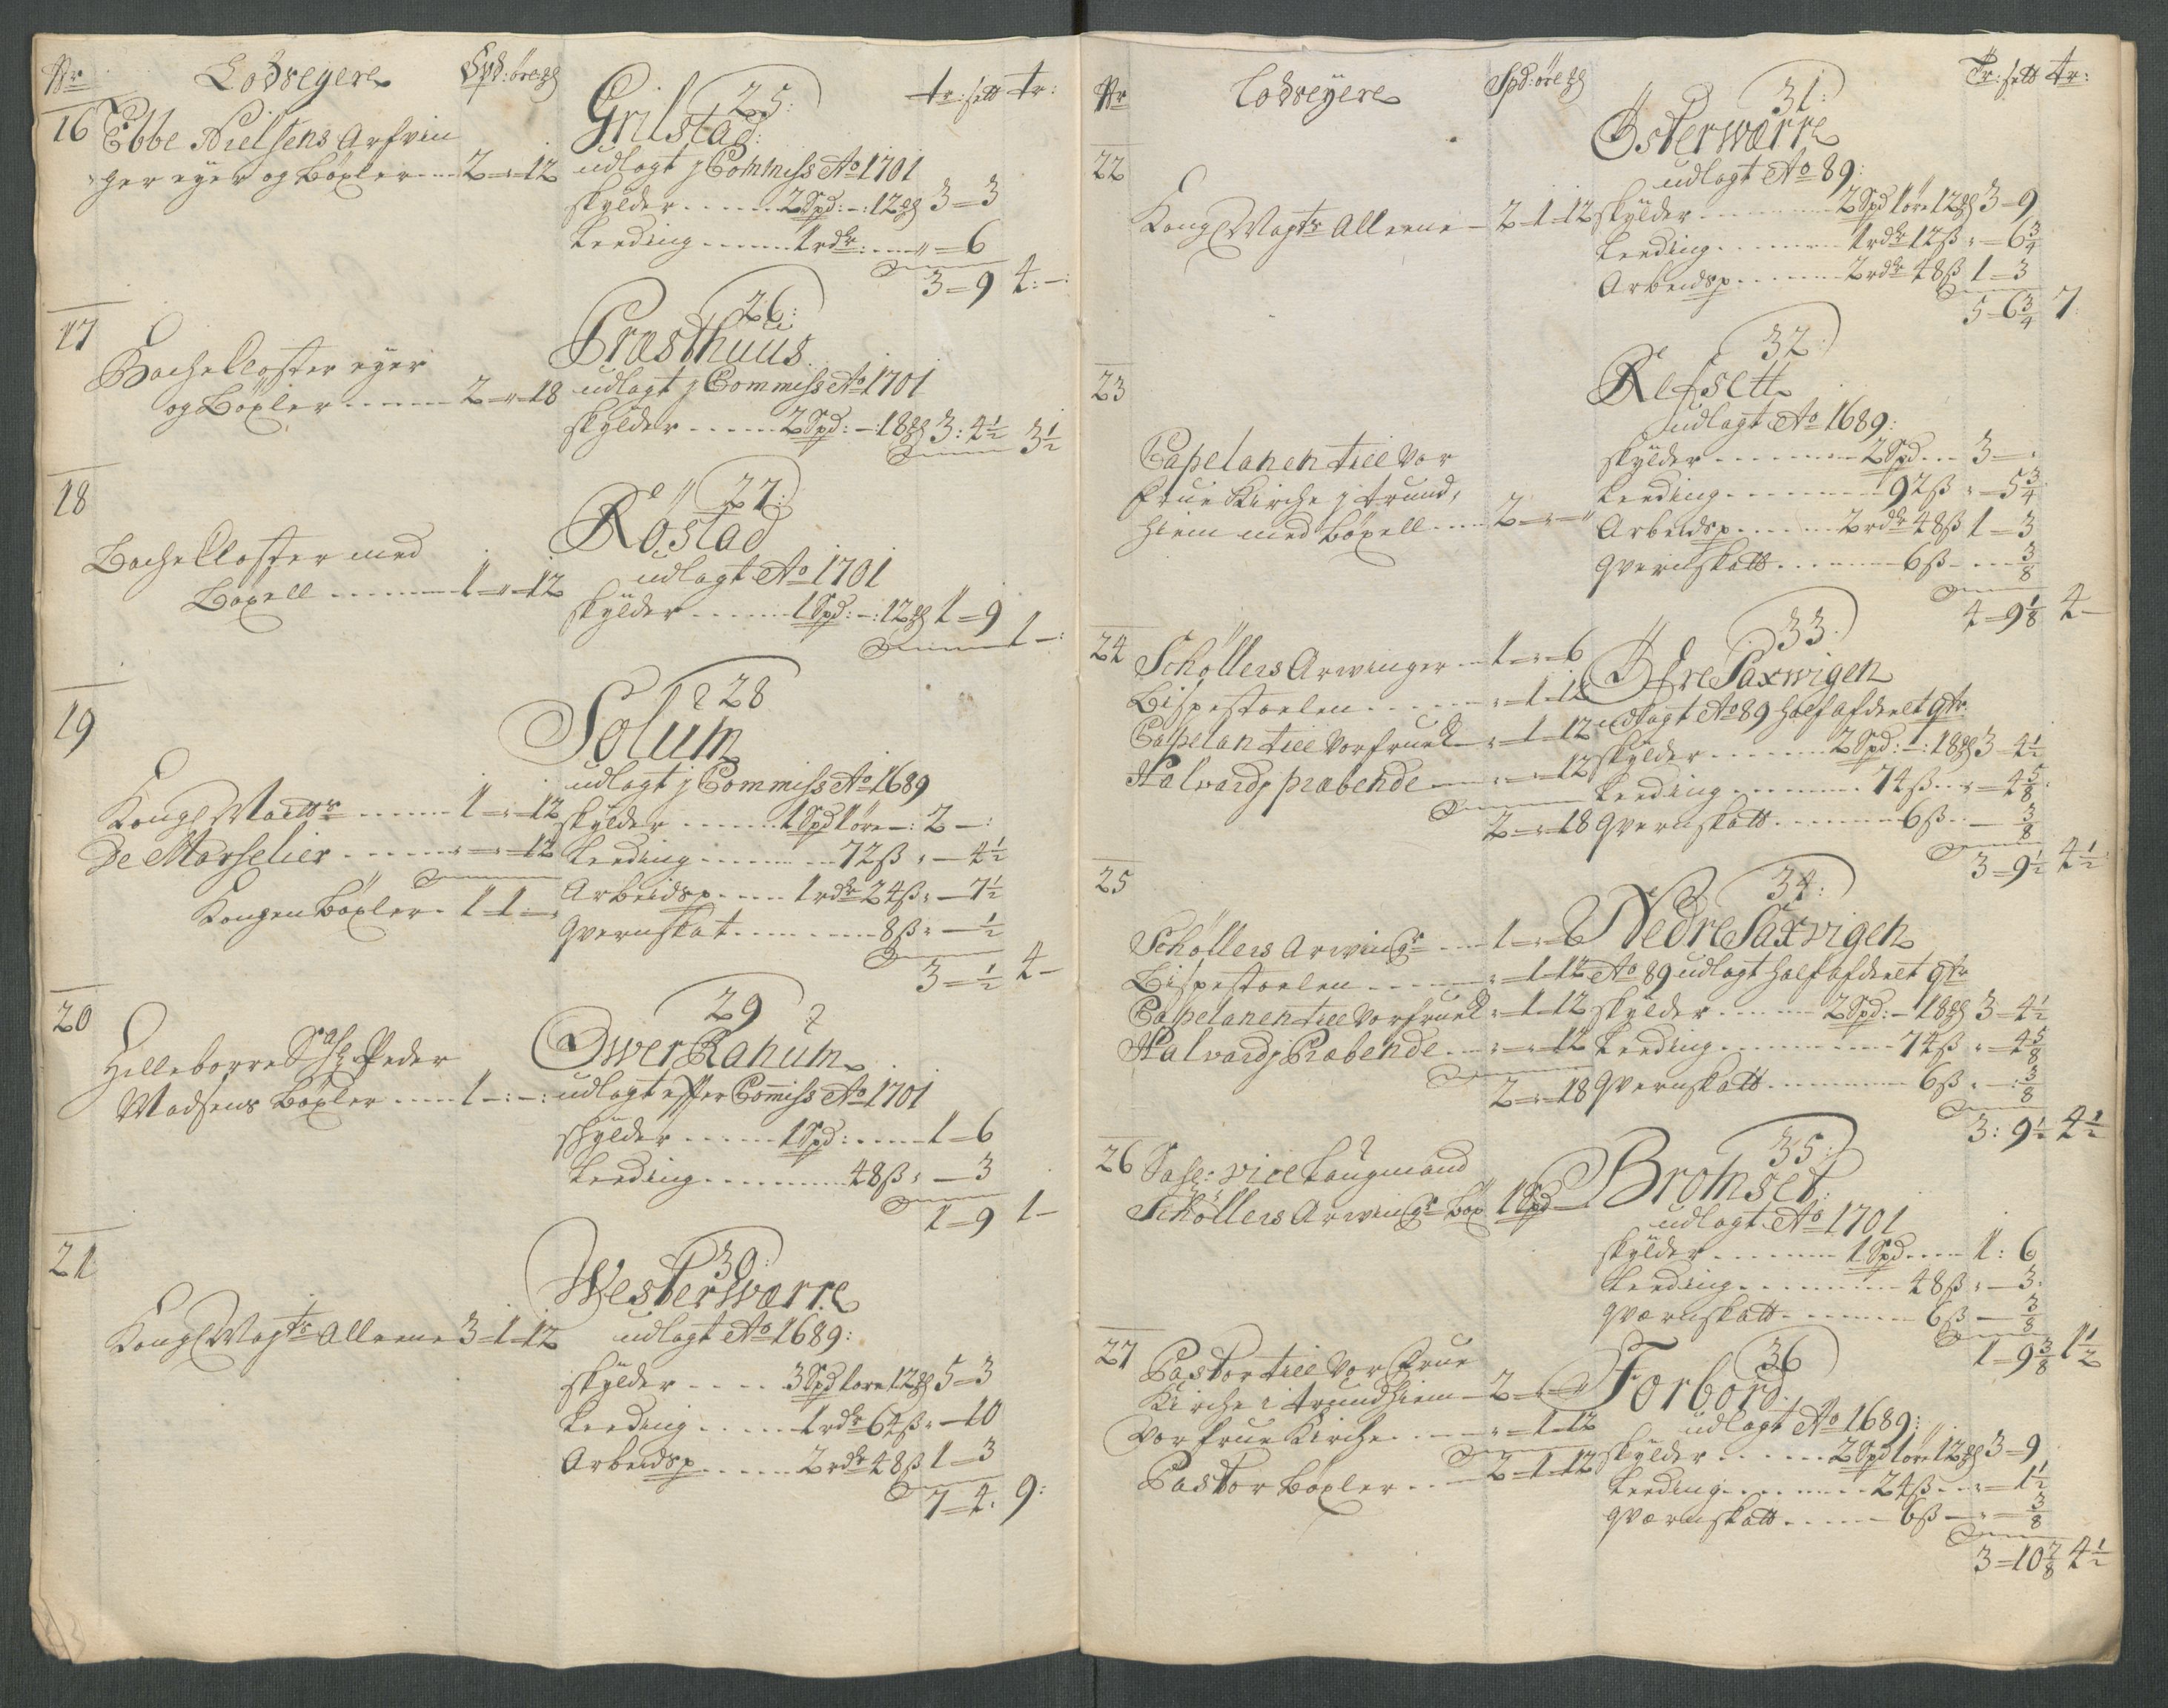 Nr Lodseyere Spd: öre: mk tr: sett tr:
16 Ebbe Nielsens Arfvin
ger eyer og böxler 2 = " = 12
25:
Grilstad:
udlagt j Commiss Ao 1701
skylder 2 Spd: –: 12 mk 3 = 3
Leeding 1 rdr: " = 6
3 = 9 4: –:
17 Bachecloster eyer
og Böxler 2 = " = 18
26:
Præsthuus
udlagt j Commiss Ao 1701
skylder 2 Spd: –: 18 mk 3: 4½ 3½
18 Bachecloster med
Böxell 1 = " = 12
27:
Röstad
udlagt Ao 1701
skylder 1 Spd: –: 12 mk 1 = 9
1 –:
19 Kongl Maitt 1 = " = 12
De Marselier " = " = 12
Kongen Böxler 1 = 1 –
28
Solum
udlagt j Commiss Ao 1689
skylder 1 Spd 1 öre –: 2 –:
Leeding 72 ß " – 4½
Arbeidsp 1 rdr 24 ß " – 7½
qvernskat 8 ß " – ½
3 = ½ 4 –
20 Hilleborre Sal Peder
Madsens böxler 1 –: –:
29
Ower Ranum
udlagt effter Comiss Ao 1701
skylder 1 Spd: 1 = 6
Leeding 48 ß " – 3
1 = 9 1 –
21 Kongl Maytt Alleene 3 = 1 = 12
30:
Westerwærre
udlagt Ao 1689:
skylder 3 Spd 1 öre 12 mk 5 = 3
Leeding 1 rdr 64 ß " – 10
Arbeidsp 2 rdr 48 ß 1 = 3
7 = 4. 9:
Nr Lodseyere Spd: öre mk Tr: sett tr:
22 Kongl Maytt Alleene 2 = 1 = 12
31:
Österwærre
udlagt Ao 89:
skylder 2 Spd 1 öre 12 mk 3 = 9
Leeding 1 rdr 12 ß " = 6¾
Arbeidsp 2 rdr 48 ß 1 = 3
5 = 6¾ 7:
23 Capelanen till vor
frue Kirche j trund,
hiem med böxell 2 = " = "
32:
Refsett
udlagt Ao 1689:
skylder 2 Spd 3 –:
Leeding 92 ß " = 5¾
Arbeidsp 2 rdr 48 ß 1 = 3
qvernskatt 6 ß 3/8
4 = 9 1/8 4 –
24 Schöllers Arwinger 1 = " = 6
Bispestoelen " = 1 = 12
Capelan till vor frue K " = 1 = 12
Halvards præbende " = " = 12
2 = " = 18
33:
Öfre Saxwigen
udlagt Ao 89 half afdeelt qtr
skylder 2 Spd: –: 18 mk 3 = 4½
Leeding 74 ß " = 4 5/8
qvernskatt 6 ß – 3/8
3 = 9½ 4½
25 Schöllers Arwingr 1 = " = 6
Bispestoelen " = 1 = 12
Capelanen till vor frue K " = 1 = 12
Halvards Præbende " = " = 12
2 = " = 18
34:
Nedre Saxvigen
Ao 89 udlagt half afdeelt qtr
skylder 2 Spd: – 18 mk 3 = 4½
Leeding 74 ß " = 4 5/8
qvernskatt 6 ß " –: 3/8
3: 9½ 4½
26 Sal: vice Laugmand
Schöllers Arwingr böx 1 Spd
35:
Bromset:
udlagt Ao 1701
skylder 1 Spd 1: 6
Leeding 48 ß " – 3:
qværnskatt 6 ß – 3/8
1 = 9 3/8 1½
27 Pastor till Vor frue
Kirche i trundhiem 2 = " = "
Vor frue Kirche " = 1 = 12
Pastor böxler 2 = 1 = 12
36
Forbord:
udlagt Ao 1689:
skylder 2 Spd 1 öre 12 mk 3 = 9
Leeding 24 ß " = 1½
qværnskatt 6 ß – " = 3/8
3 = 10 7/8 4½